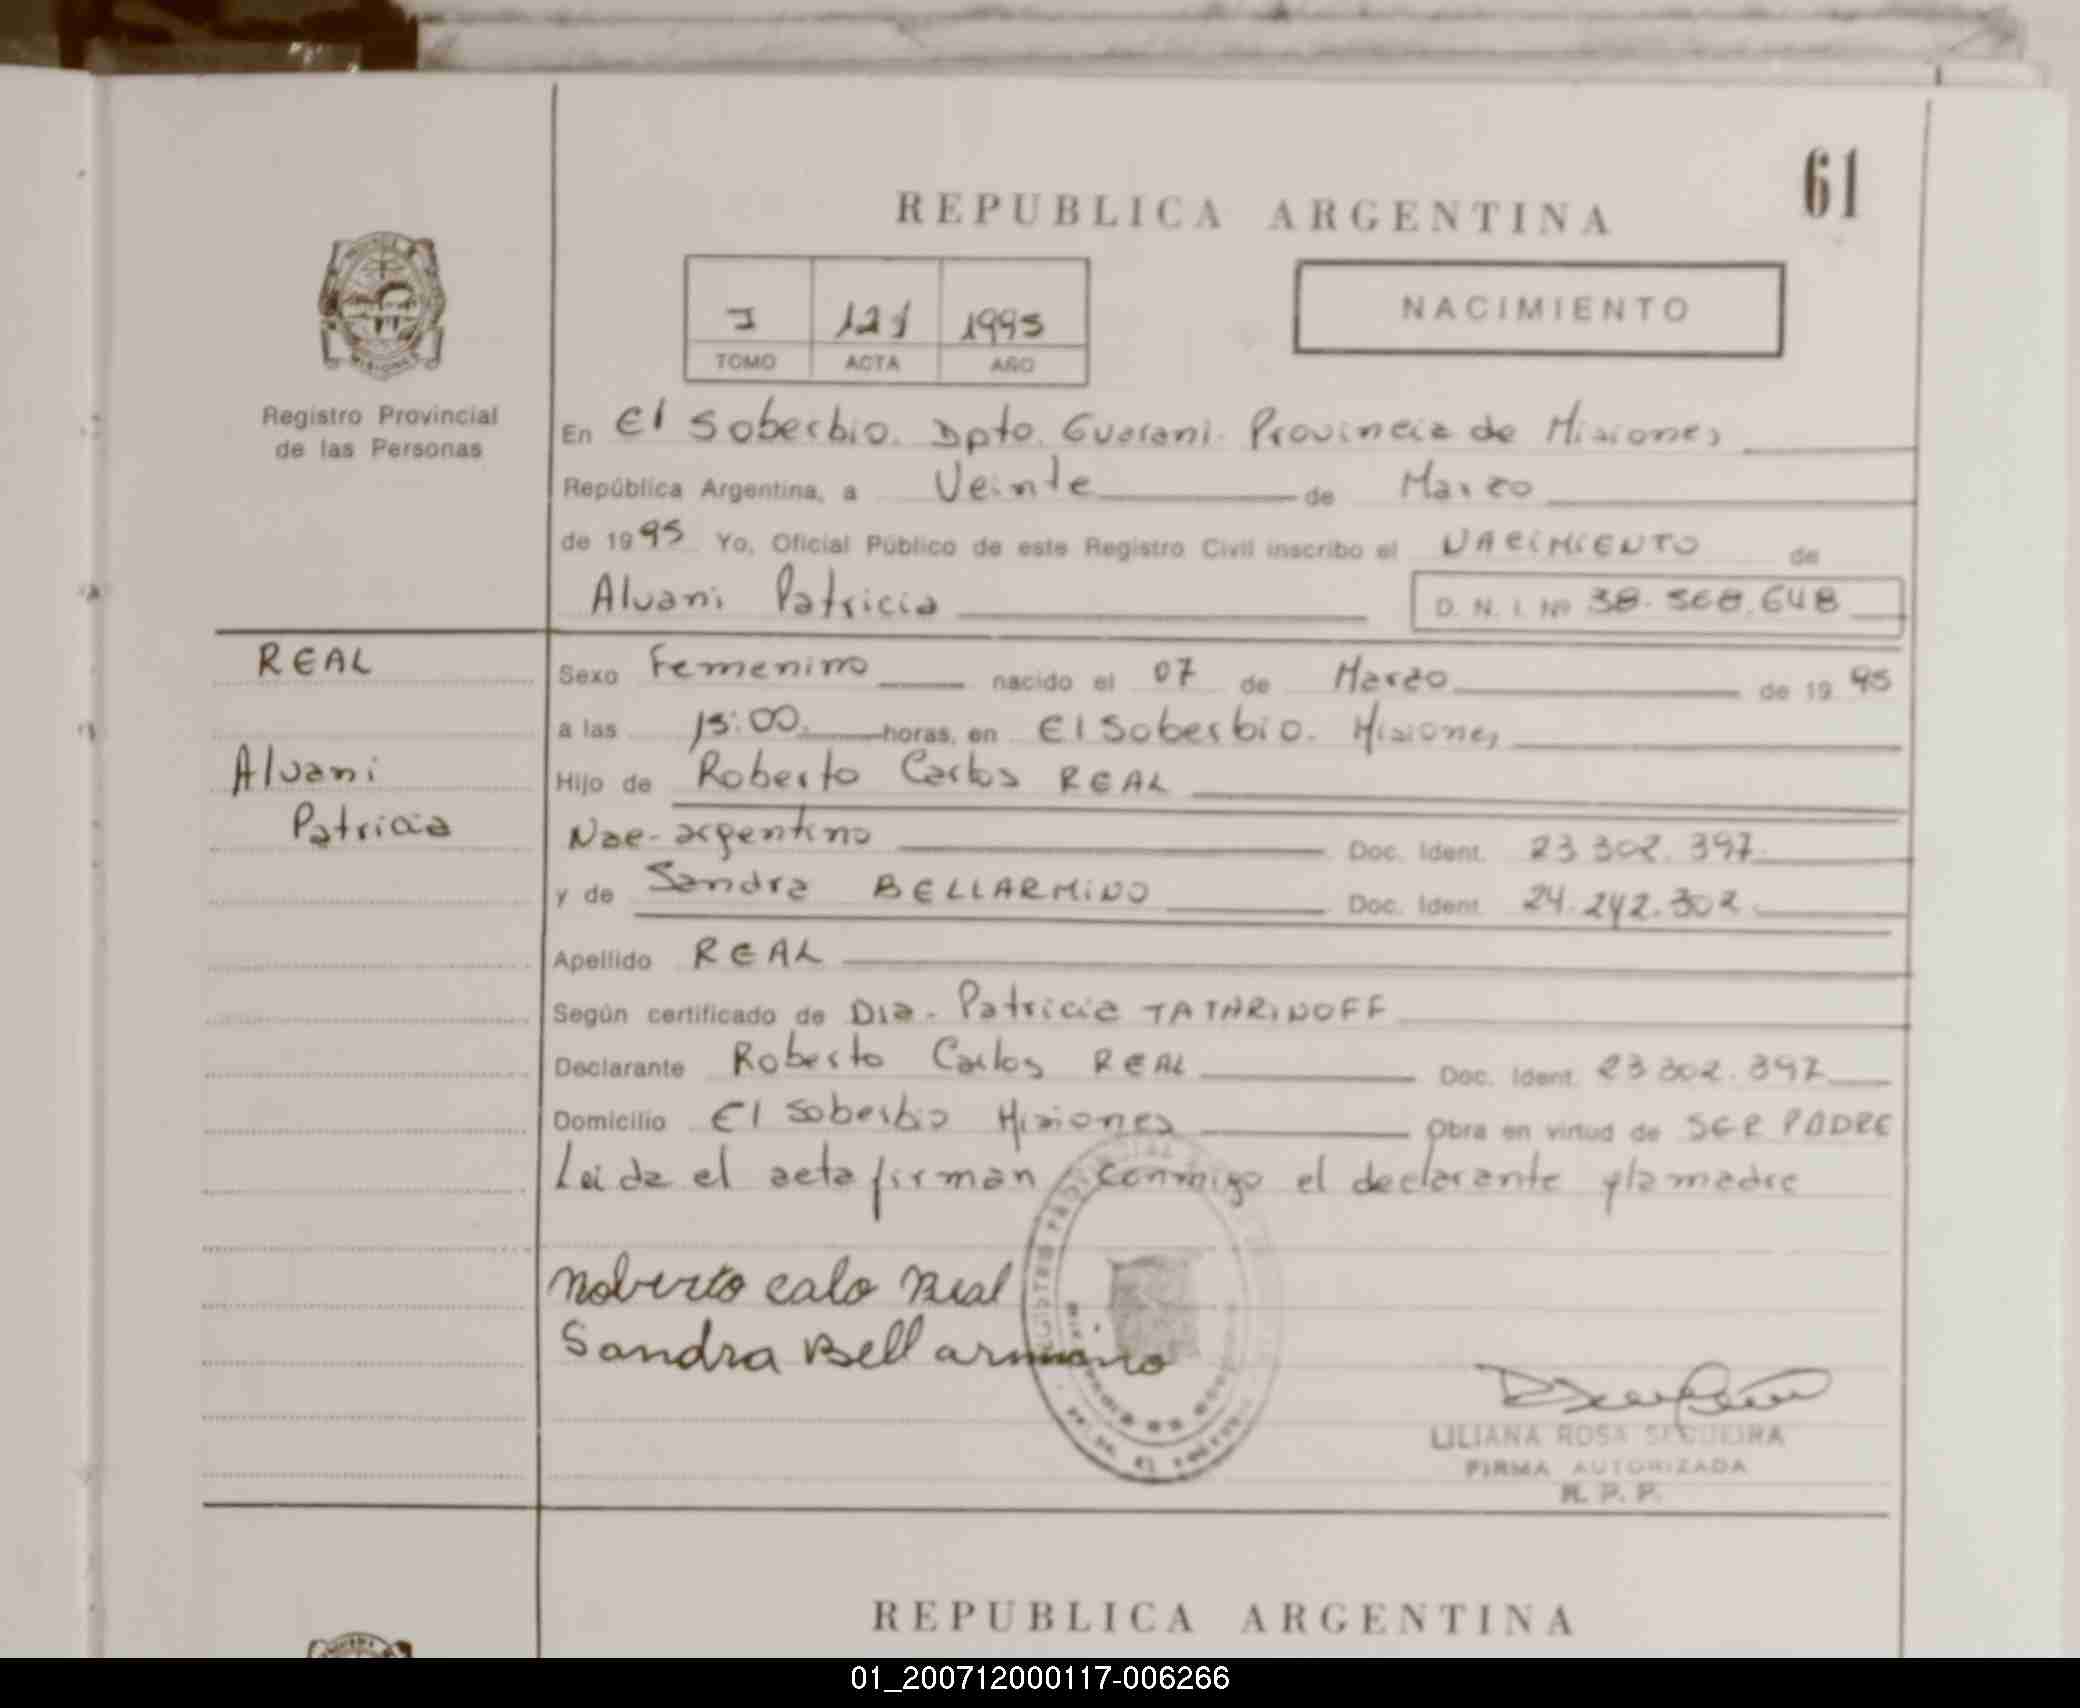 61
REPUBLICA ARGENTINA
I 121 1995
TOMO ACTA AÑO
NACIMIENTO
Registro Provincial
de las Personas
En El Soberbio. Dpto. Guarani. Provincia de Misiones
República Argentina, a Veinte de Marzo
de 1995 Yo, Oficial Público de este Registro Civil inscribo el NACIMIENTO de
Alvani Patricia D. N. I. Nº 38.568.648
REAL
Alvani
Patricia
Sexo Femenino nacido el 07 de Marzo de 19 95
a las 15:00. horas, en El Soberbio. Misiones
Hijo de Roberto Carlos REAL
Nac. argentino Doc. Ident. 23 302. 397.
y de Sandra BELLARMINO Doc. Ident. 24.242.302
Apellido REAL
Según certificado de Dra. Patricia TATARINOFF
Declarante Roberto Carlos REAL Doc. Ident. 23 302. 397
Domicilio El Soberbio Misiones Obra en virtud de SER PADRE
Leida el acta firman conmigo el declarante y la madre
Roberto calo Real
Sandra Bellarmino
LILIANA ROSA SEQUEIRA
FIRMA AUTORIZADA
R. P. P.
REPUBLICA ARGENTINA
01_200712000117-006266